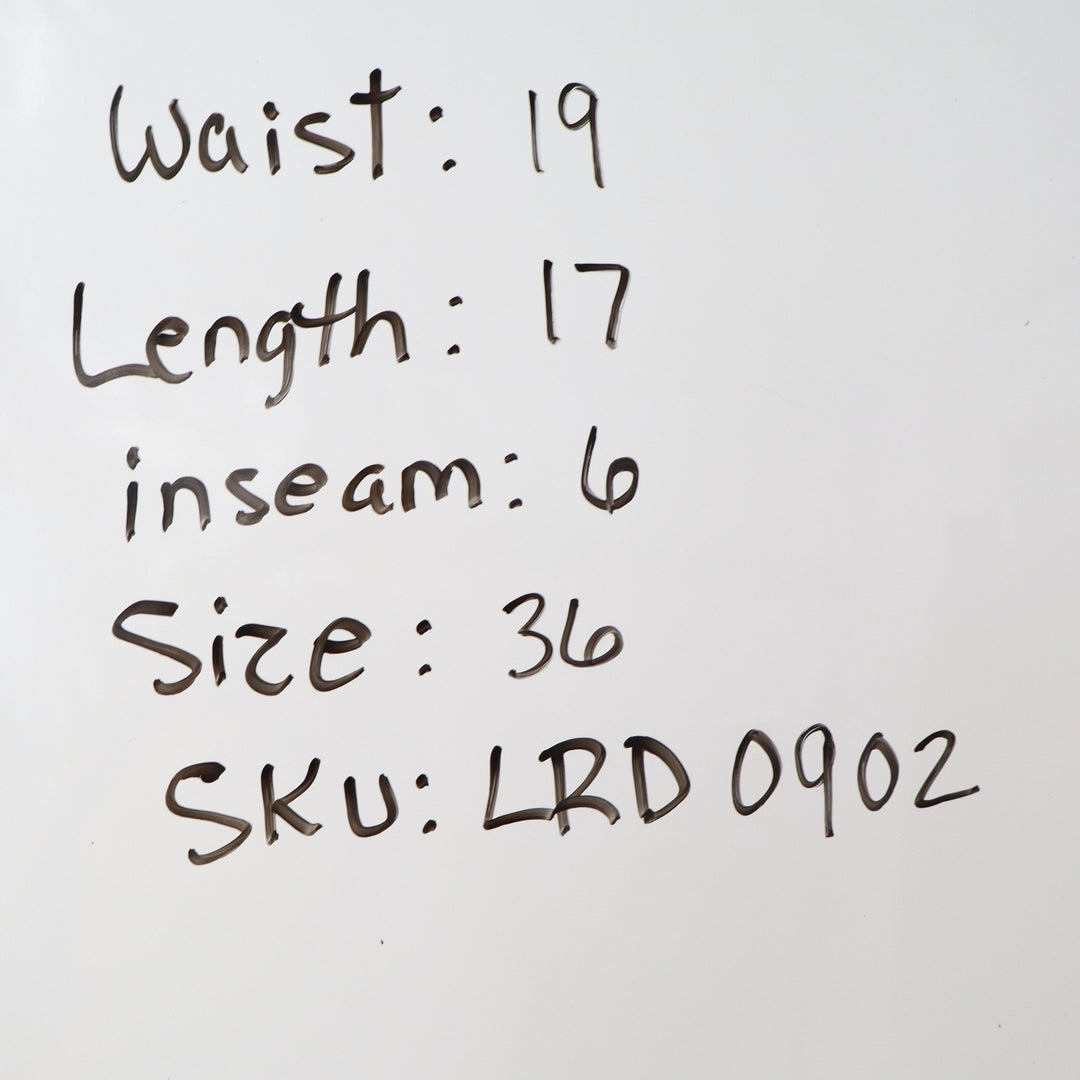 Waist: 19
Length: 17
inseam: 6
Size: 36
SKU: LRD 0902